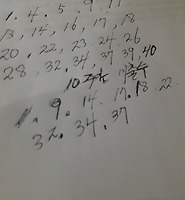 1. 4. 5. 9. 11
13, 14, 16, 17, 18
20, 22, 23, 24, 26
28, 32, 34, 37, 39, 40
10
1. 9. 14. 17. 18. 22.
32. 34. 37